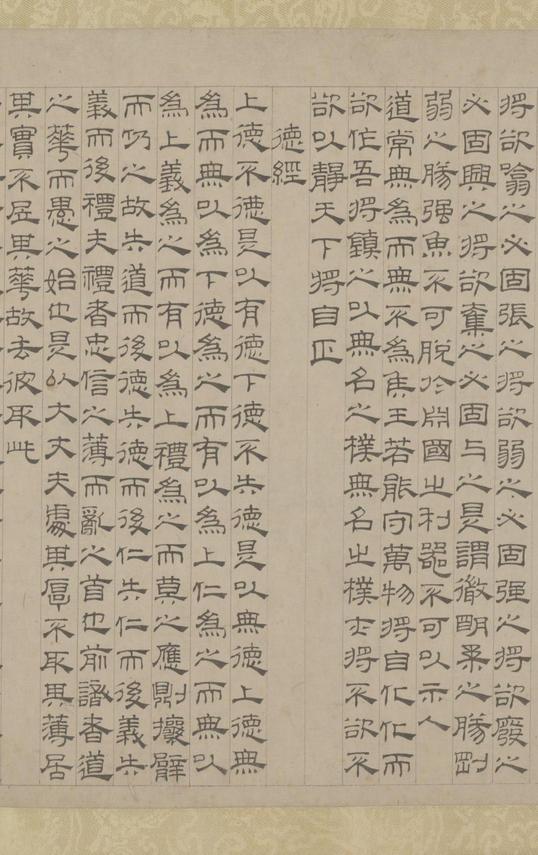 將欲噏之必固張之將欲弱之必固强之將欲廢之
必固興之將欲奪之必固与之是謂微明柔之勝剛
弱之勝强魚不可脫於淵國之利器不可以示人
道常無為而無不為侯王若能守萬物將自化化而
欲作吾將鎮之以無名之樸無名之樸亦將不欲不
欲以靜天下將自正
德經
上德不德是以有德下德不失德是以無德上德無
為而無以為下德為之而有以為上仁為之而無以
為上義為之而有以為上禮為之而莫之應則攘臂
而仍之故失道而後德失德而後仁失仁而後義失
義而後禮夫禮者忠信之薄而亂之首也前識者道
之華而愚之始也是以大丈夫處其厚不取其薄居
其實不居其華故去彼取此